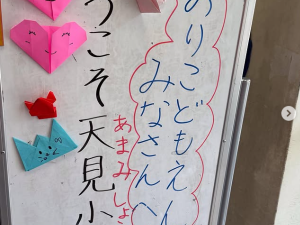 のりこどもえん
みなさんへ
うこそ天見小
あまみしょ